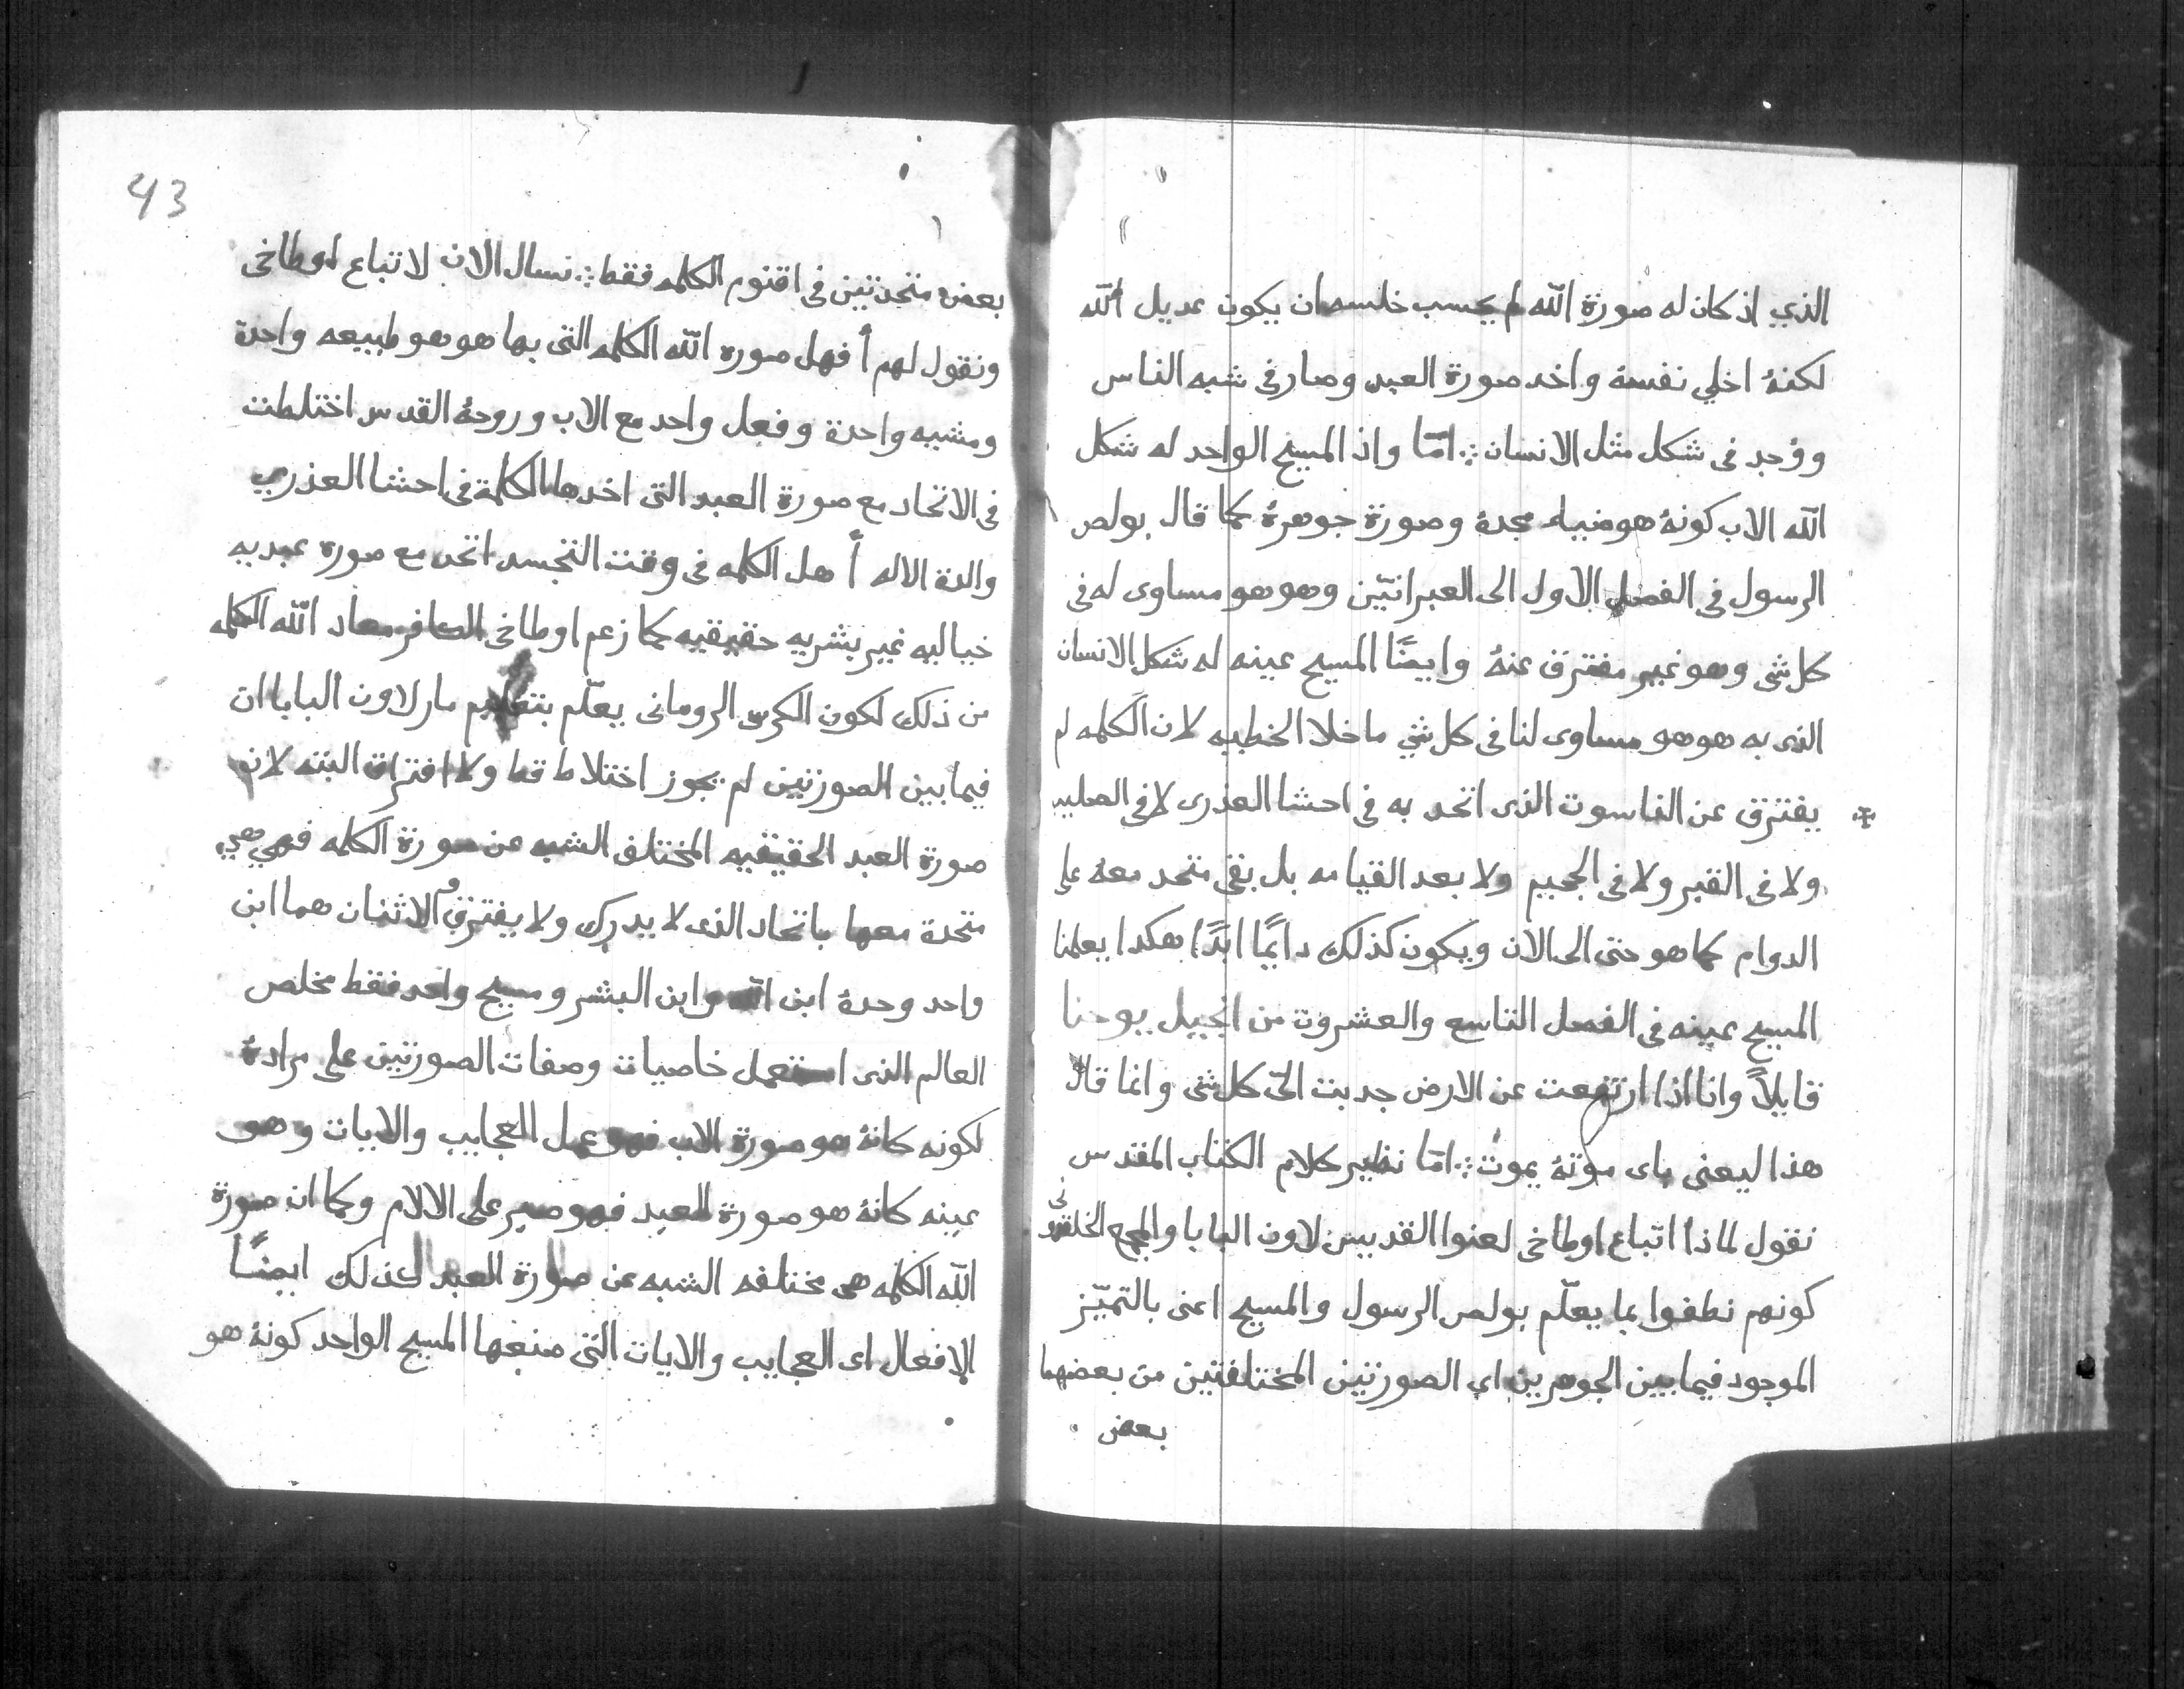 الذي اذ كان له صورة الله لم يحسب خلسه ان يكون عديل الله
لكنهٔ اخلي نفسهٔ واخد صورة العبد وصار في شبه الناس
ووُجد في شكل مثل الانسان ⁘ امّا واذ المسيح الواحد له شكل
الله الاب كونهٔ هو ضيا مجدهٔ وصورة جوهرهٔ كما قال بولص
الرسول في الفصل الاول الى العبرانيّين وهو هو مساوى له في
كل شى وهو غير مفترق عنهٔ وايضًا المسيح عينه له شكل الانسان
الذى به هو هو مساوى لنا في كل شي ما خلا الخطيه لان الكلمه لم
يفترق عن الناسوت الذى اتحد به في احشا العذرى لا في الصليب
ولا في القبر ولا في الجحيم ولا بعد القيامه بل بقى متحد معهٔ على
الدوام كما هو حتى الى الان ويكون كذلك دايمًا ابدًا هكدا يعلمنا
المسيح عينه في الفصل التاسع والعشرون من انجيل يوحنا
قايلاً وانا اذا ارتفعت عن الارض جدبت اليّ كل شى وانما قال
هذا ليعنى باى موتهٔ يموت ⁘ امّا نظير كلام الكتاب المقدس
نقول لماذا اتباع اوطاخى لعنوا القديس لاون البابا والمجمع الخلقدونى
كونهم نطقوا بما يعلّم بولص الرسول والمسيح اعنى بالتميّز
الموجود فيما بين الجوهرين اي الصورتين المختلفتين من بعضهما
بعض
43
بعض متحدتين في اقنوم الكلمه فقط ⁘ نسال الان لاتباع اوطاخى
ونقول لهم أ فهل صوره الله الكلمه التى بها هو هو طبيعه واحدة
ومشيه واحدة وفعل واحد مع الاب وروحهٔ القدس اختلطت
في الاتحاد مع صورة العبد التى اخدها الكلمة في احشا العذري
والدة الاله أ هل الكلمه في وقت التجسد اتحد مع صورة عبديه
خياليه غير بشريه حقيقيه كما زعم اوطاخى الكافر معاد الله الكلمه
من ذلك لكون الكرسى الرومانى يعلّم بتعليم مار لاون البابا ان
فيما بين الصورتين لم يجوز اختلاط قط ولا افتراق البته لان
صورة العبد الحقيقيه المختلف الشبه عن صورة الكلمه فهي هي
متحدة معها باتحاد الذى لا يدرك ولا يفترق والاثنان هما ابن
واحد وحدهٔ ابن الله وابن البشر ومسيح واحد فقط مخلص
العالم الذى استعمل خاصيات وصفات الصورتين على مرادهٔ
لكونه كانهٔ هو صورة الاب فهو عمل العجايب والايات وهو
عينه كانهٔ هو صورة العبد فهو صبر على الالام وكما ان صورة
الله الكلمه هى مختلفه الشبه عن صورة العبد كذلك ايضًا
الافعال اى العجايب والايات التى صنعها المسيح الواحد كونهٔ هو